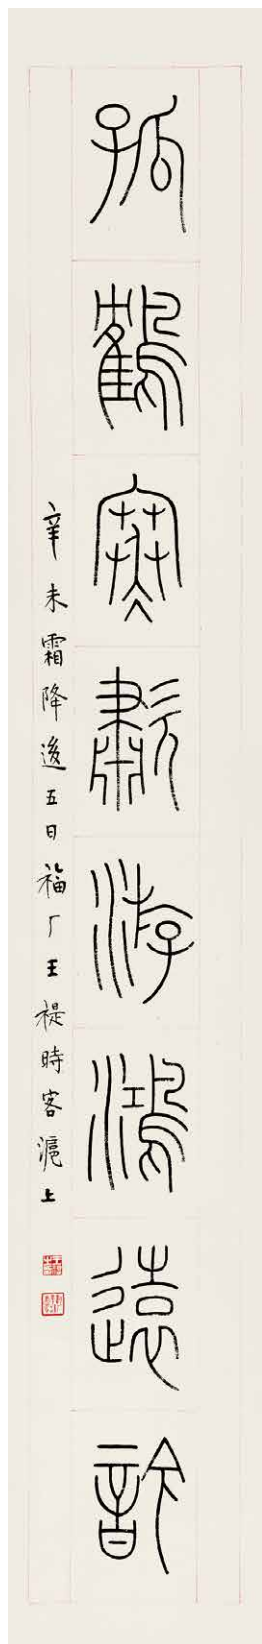 孤鶴寒歗游鴻遠訡
辛未霜降後五日福厂王禔時客滬上